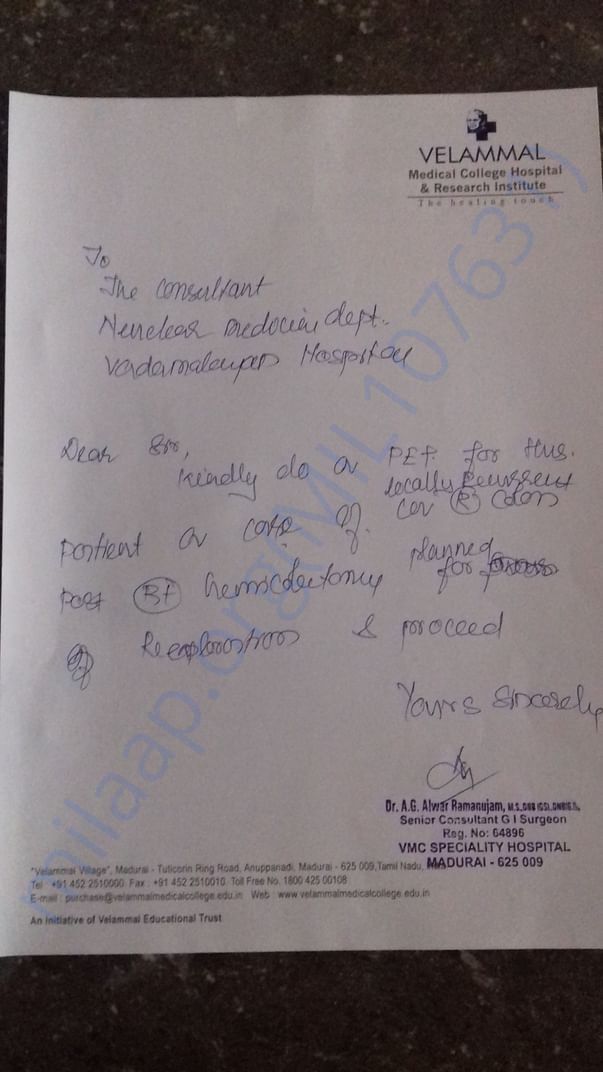 VELAMMAL
Medical College Hospital
& Research Institute
The healing touch
To
The Consultant
Nuclear Medicine dept.
Vadamalayan Hospital
Dear Sir,
Kindly do a PET for this
patient a case of locally Recurrent
Ca (R) Colon
post (Rt) hemicolectomy planned
for
Reexploration & proceed
Yours Sincerely
Dr. A.G. Alwar Ramanujam, M.S.,
Senior Consultant G I Surgeon
Reg. No: 64896
VMC SPECIALITY HOSPITAL
MADURAI - 625 009
"Velammal Village", Madurai - Tuticorin Ring Road, Anuppanadi, Madurai - 625 009,Tamil Nadu,
Tel : +91 452 2510000. Fax : +91 452 2510010. Toll Free No. 1800 425 00108
E-mail : purchase@velammalmedicalcollege.edu.in Web : www.velammalmedicalcollege.edu.in
An Initiative of Velammal Educational Trust
milaap.org(MIL1076317)